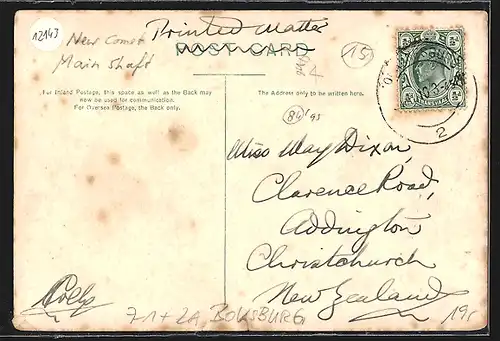 12143
Printed Matter
New Comet
Main Shaft
POST CARD
15
For Inland Postage, this space as well as the Back may
now be used for communication.
For Oversea Postage, the Back only.
The Address only to be written here.
84/95
TRANSVAAL
2
Miss May Dixon,
Clarence Road,
Addington
Christchurch
New Zealand
71+2A BOKSBURG
19